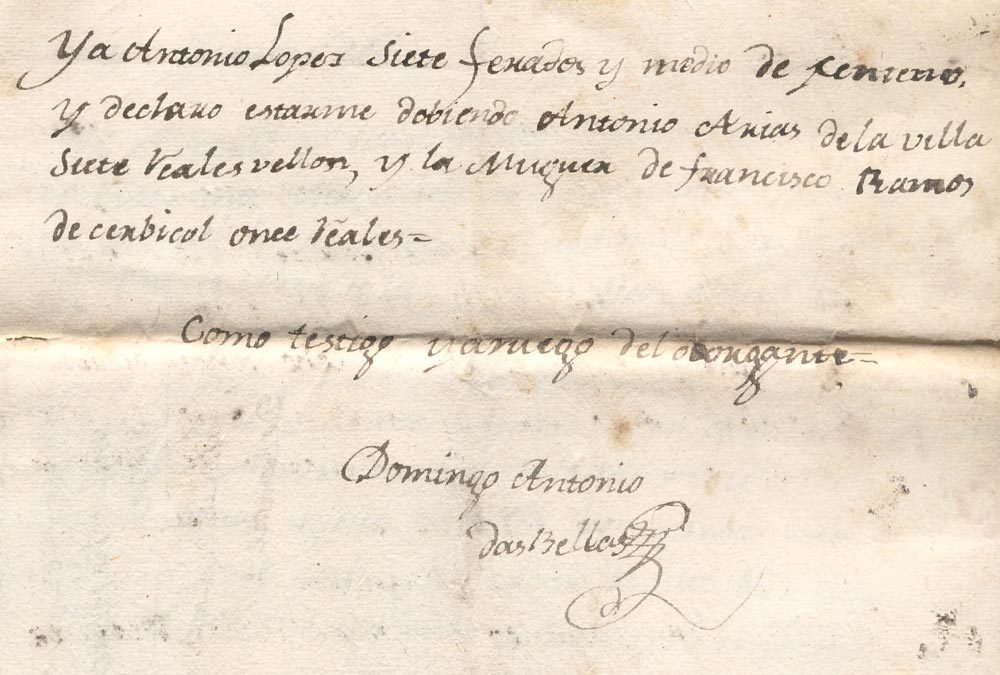 Y a Antonio Lopez siete ferrados y medio de senteno,
y declaro estarme debiendo Antonio Arias de la villa
siete rreales vellon, y la Muguer de francisco Ramos
de cerbicol once rreales=
Como testigo y a ruego del otorgante=
Domingo Antonio
das Bellas